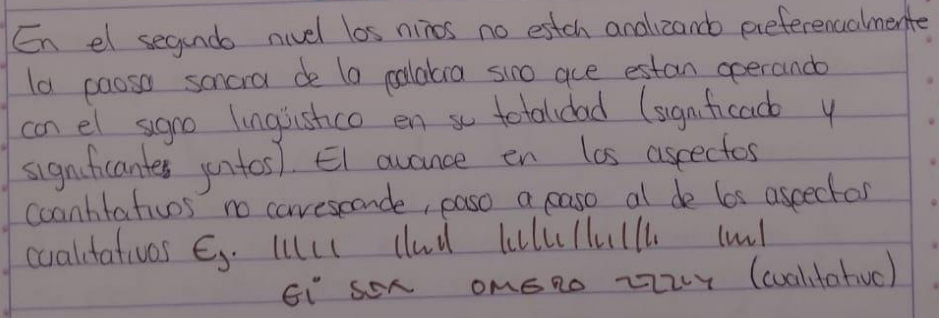 En el segundo nivel los niños no estch analizando preferencialmente
la paosa sonora de la palabra sino que estan operando
con el signo lingüístico en su totalidad (significado y
significantes juntos). El avance en los aspectos
cuantitativos no corresponde, paso a paso al de los aspectos
cualitativos Ej.
OMERO (cualitativo)